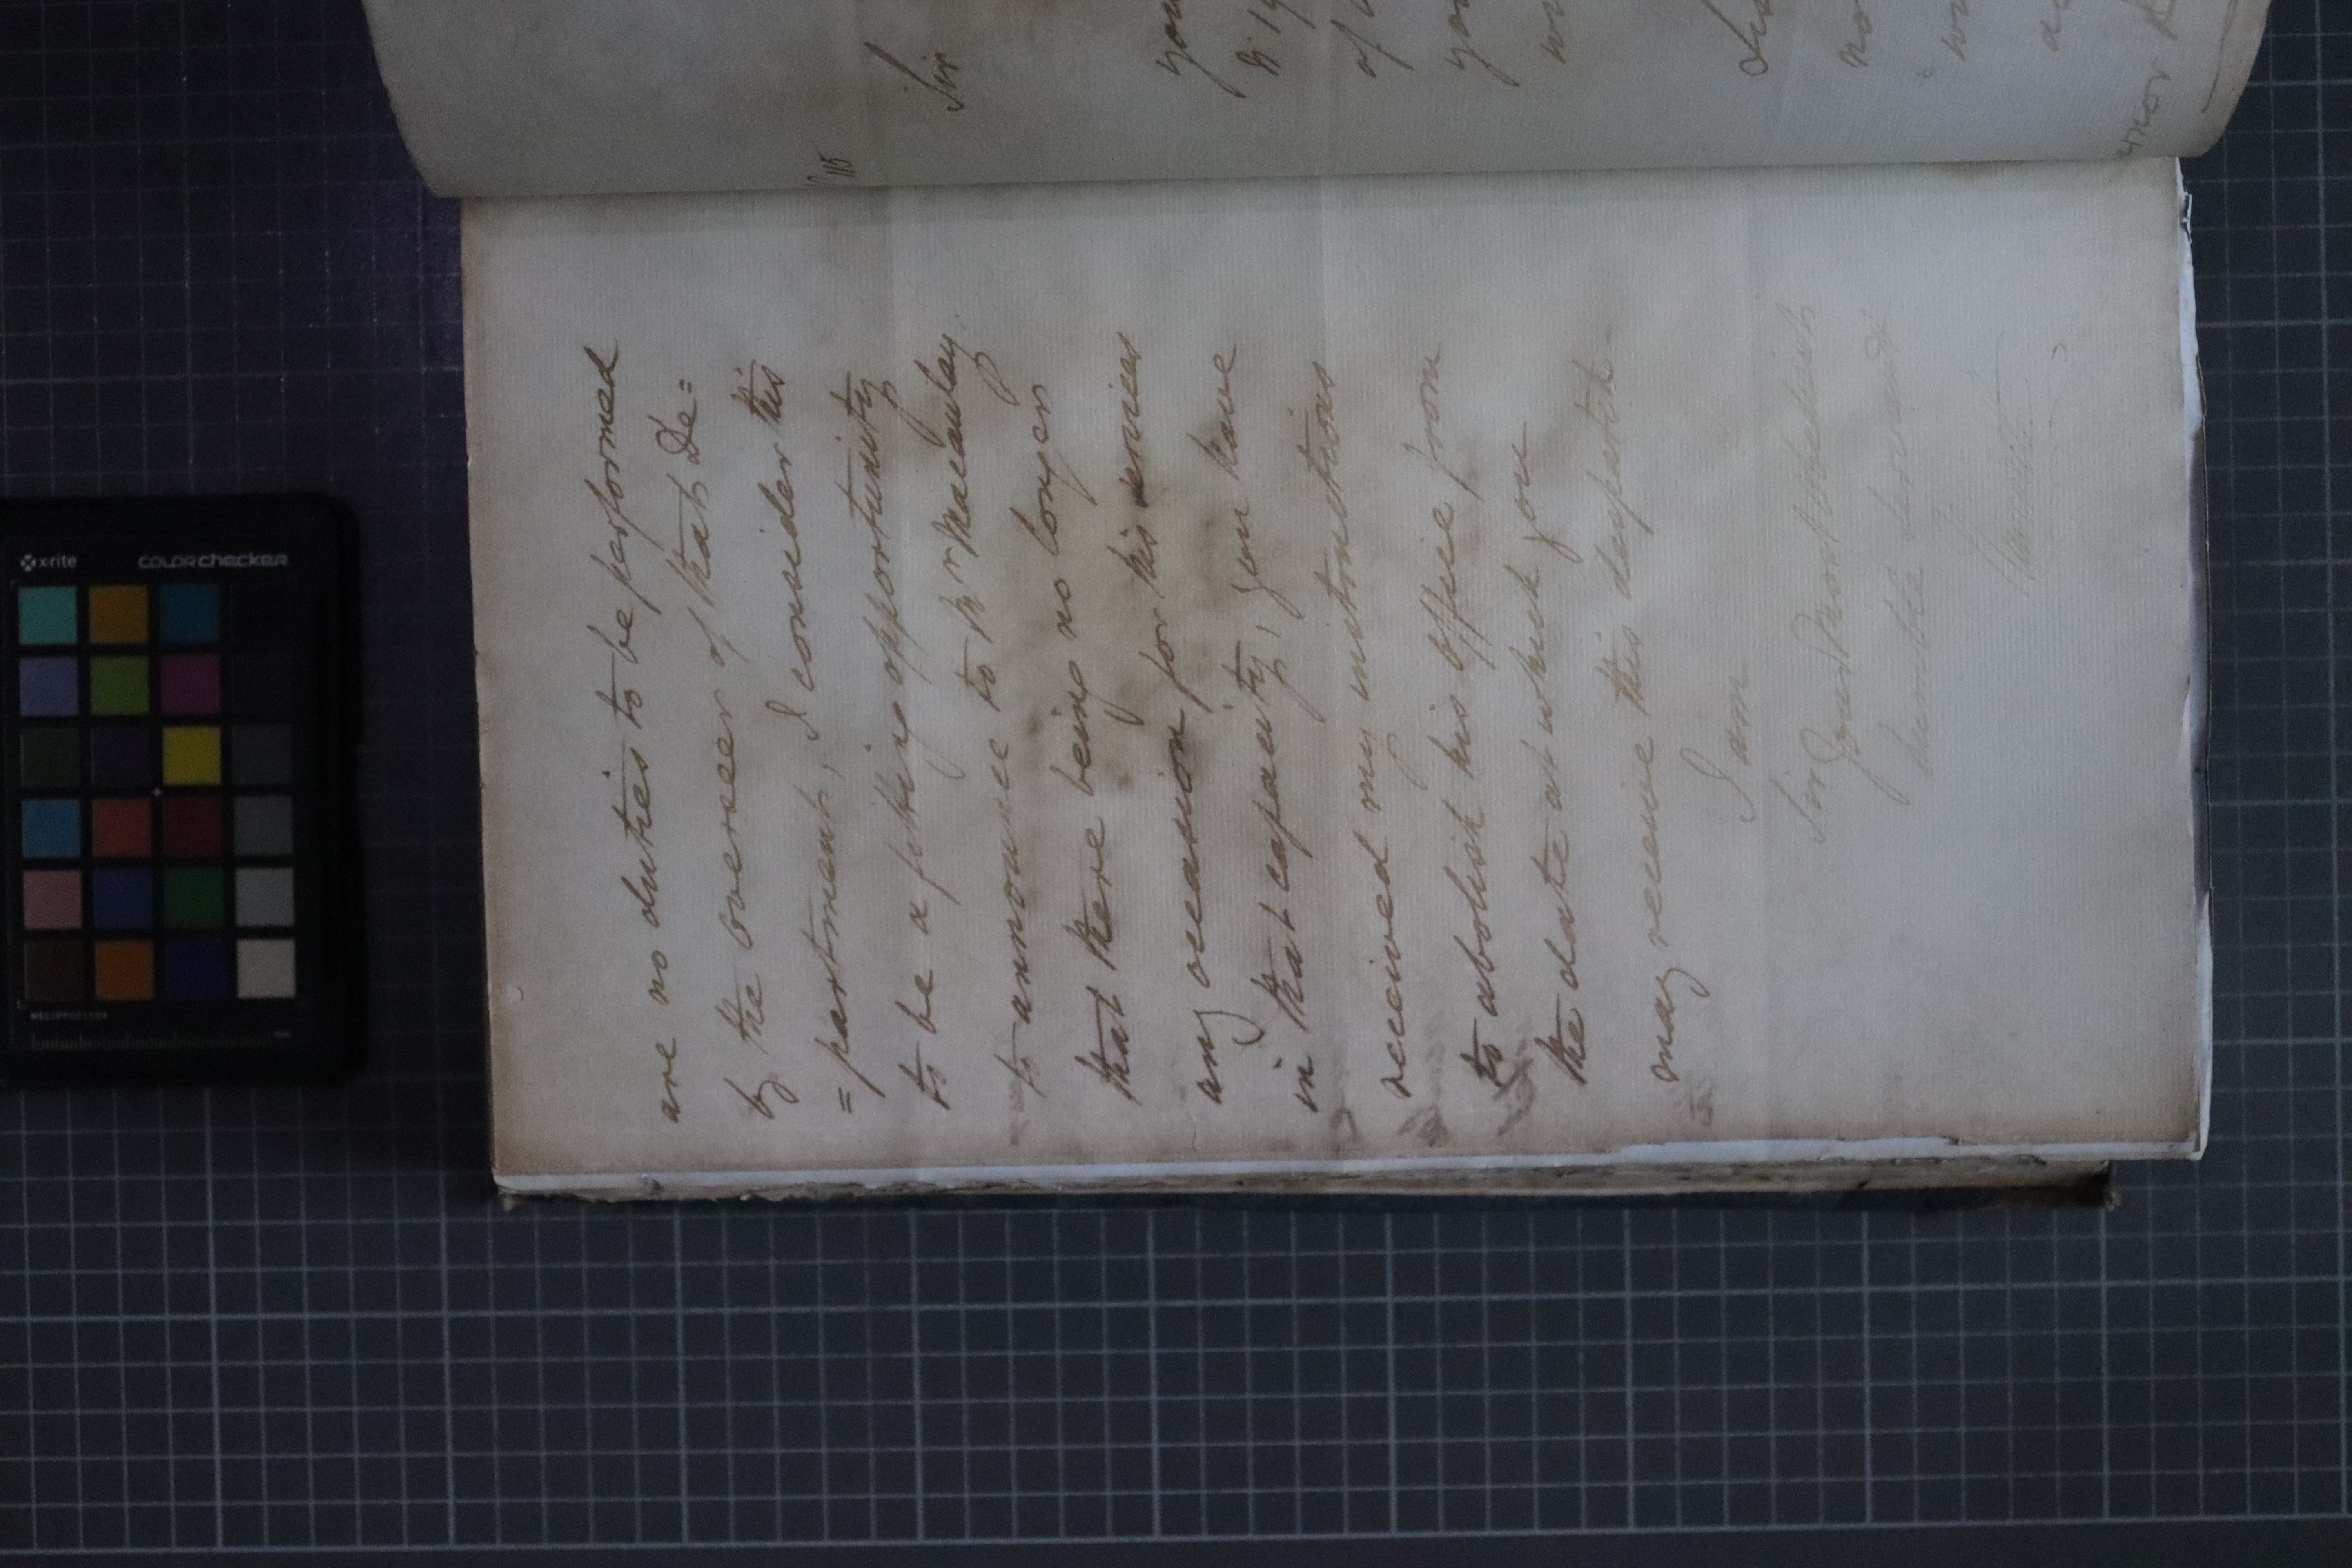 are no duties to be performed
by the Overseer of that De=
=partment, I consider this
to be a fitting opportunity
to announce to Mr Macaulay
that there being no longer
any occasion for his services
in that capacity, you have
received my instructions
to abolish his Office from
the date at which you
may receive this despatch.
I am
Sir
Your Most Obedient
humble Servant
Sir
x-rite
colorchecker